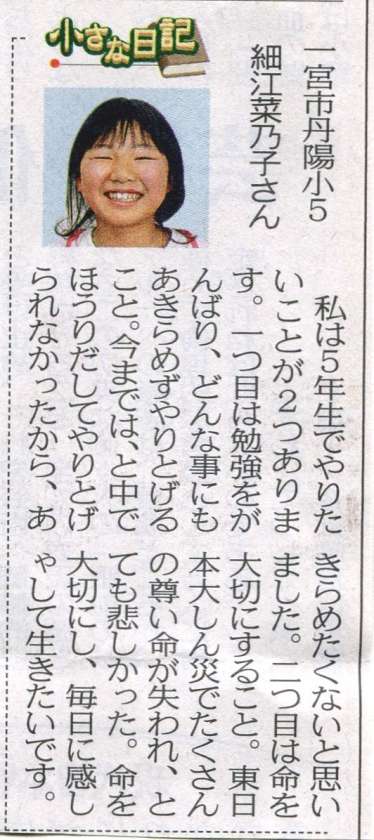 小さな日記
一宮市丹陽小５
細江菜乃子さん
私は５年生でやりた
いことが２つありま
す。一つ目は勉強をが
んばり、どんな事にも
あきらめずやりとげる
こと。今までは、と中で
ほうりだしてやりとげ
られなかったから、あ
きらめたくないと思い
ました。二つ目は命を
大切にすること。東日
本大しん災でたくさん
の尊い命が失われ、と
ても悲しかった。命を
大切にし、毎日に感し
ゃして生きたいです。